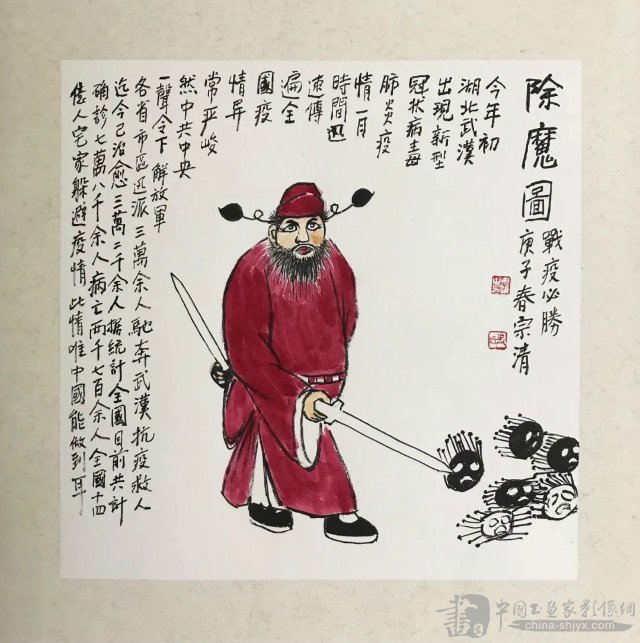 除魔圖
戰疫必勝
庚子春宗清
今年初
湖北武漢
出現新型
冠狀病毒
肺炎疫
情一月
時間迅
速傳
遍全
國疫
情异
常严峻
然中共中央
一聲令下解放軍
各省市區迅派三萬余人馳奔武漢抗疫救人
迄今已治愈三萬二千余人据統計全國目前共計
确診七萬八千余人病亡两千七百余人全國十四
億人宅家躲避疫情此情唯中國能做到耳
中国书画家影像網
china-shjyx.com